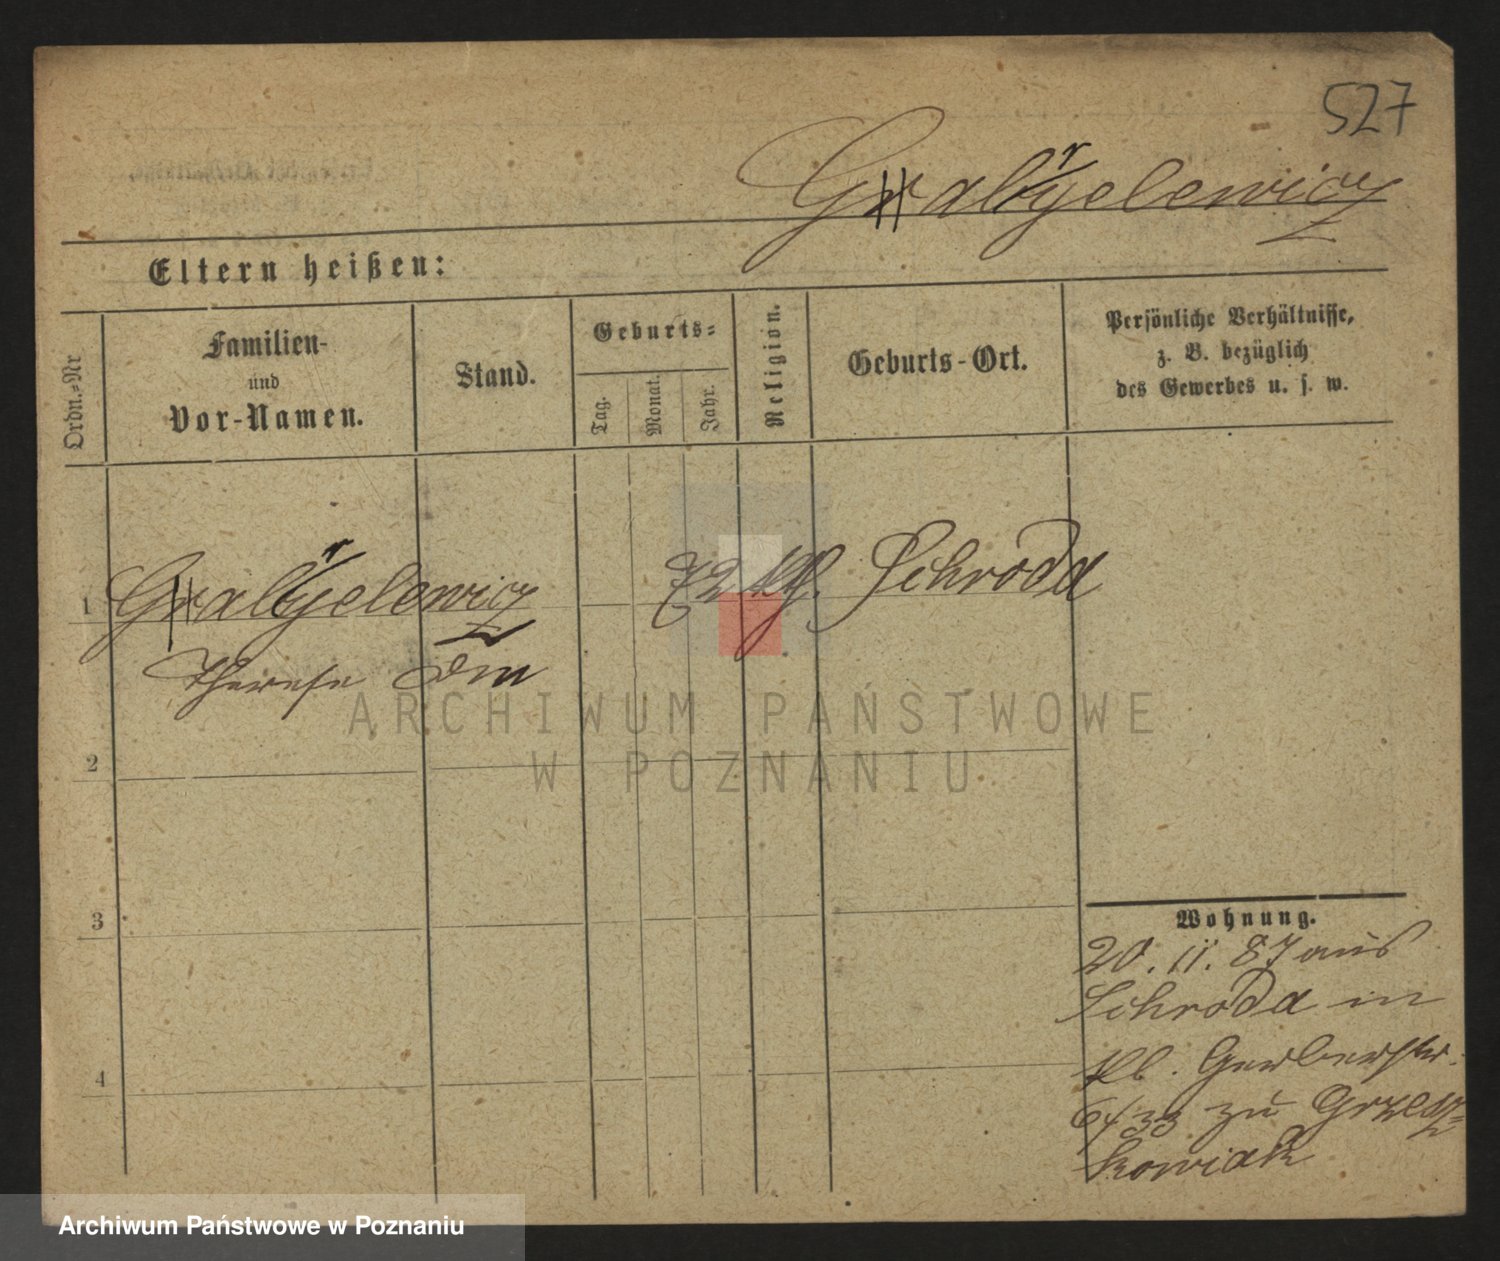 527
Grabryelewicz
Eltern heißen:
Ordn.-Nr
Familien- und Vor-Namen.
Stand.
Geburts-
Tag.
Monat.
Jahr.
Religion.
Geburts-Ort.
Persönliche Verhältnisse,
z. B. bezüglich
des Gewerbes u. s. w.
1
72 kth. Schroda
Therese
2
3
4
Wohnung.
20. 11. 87 aus
Schroda in
kl. Gerberstr.
6/33 zu Grzesz=
kowiak
ARCHIWUM PAŃSTWOWE
W POZNANIU
Archiwum Państwowe w Poznaniu